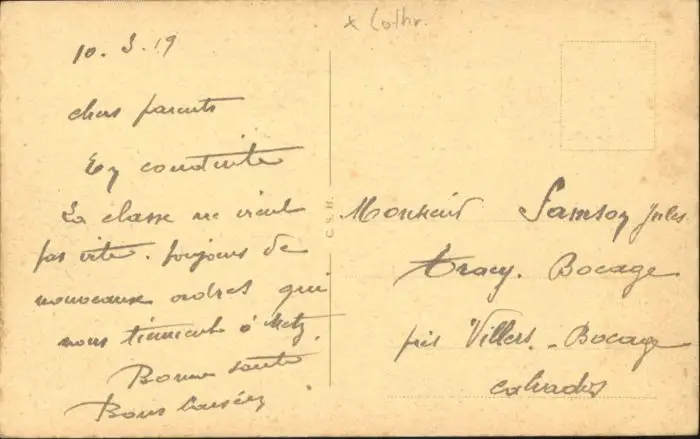 x Lothr.
10.3.19
chers parents
La classe ne vient
pas vite. toujours de
nouveaux ordres qui
nous tiennent à Metz
Bonne santé
Bons baisers
C. S. H.
Monsieur Samson Jules
Tracy. Bocage
près Villers-Bocage
Calvados